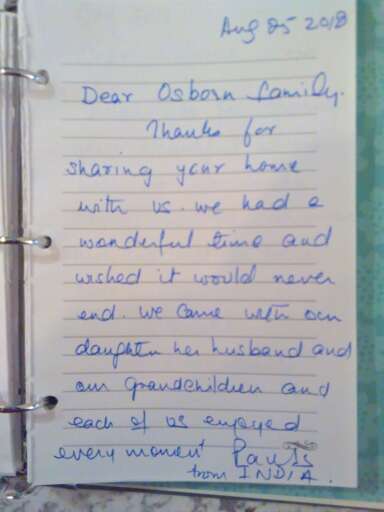 Aug 25 2018
Dear Osborn family.
Thanks for
sharing your home
with us. we had a
wonderful time and
wished it would never
end. We came with our
daughter her husband and
our grandchildren and
each of us enjoyed
every moment
from INDIA.